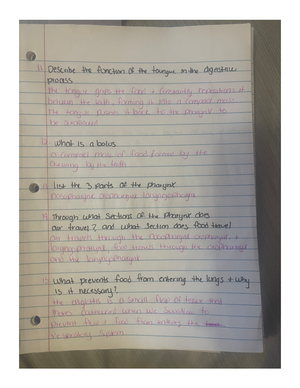 Describe the function of the toungue in the digestive
process
the tongue grips the food & constantly repositions it
between the teeth, forming it into a compact mass
the tongue pushes it back to the pharynx to
be swallowed
What is a bolus
a compact mass of food formed by the
chewing by the teeth
List the 3 parts of the pharynx
nasopharynx oropharynx laryngopharynx
Through what sections of the pharynx does
air travel? and what section does food travel
air travels through the nasopharynx oropharynx &
laryngopharynx food travels through the oropharynx
and the laryngopharynx
What prevents food from entering the lungs & why
is it necessary?
the epiglottis is a small flap of tissue that
when we swallow to
prevent food from entering the
respiratory system